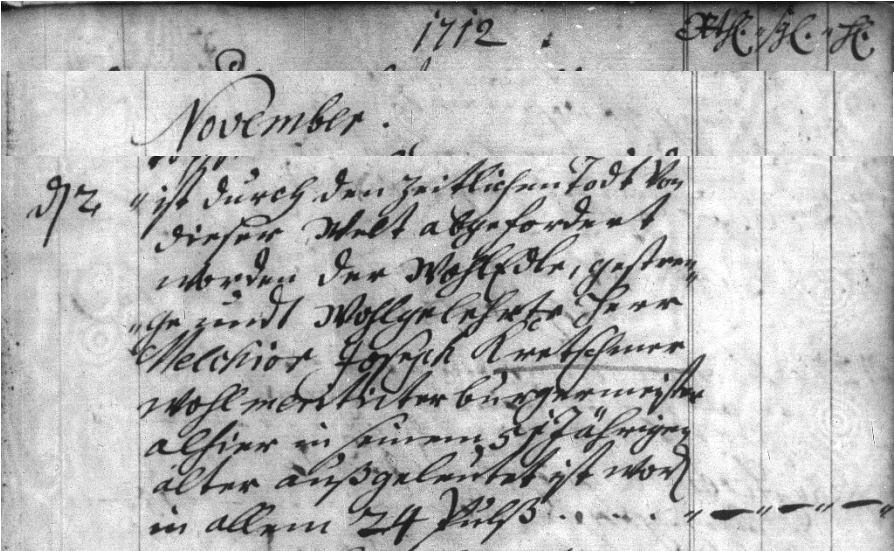 1712
Rthl. ßgl. hl.
November.
d 2 ist durch den Zeitlichen Todt Von
dieser Welt abgefordert
worden der WohlEdle, gestren„
„ge undt Wohlgelehrte Herr
Melchior Joseph Kretschmer
wohlmeritirter bürgermeister
alhier in seinem Jährigen
alter außgeleutet ist word
in allem 24 Pulß . . . . . „ — „ — „ — „